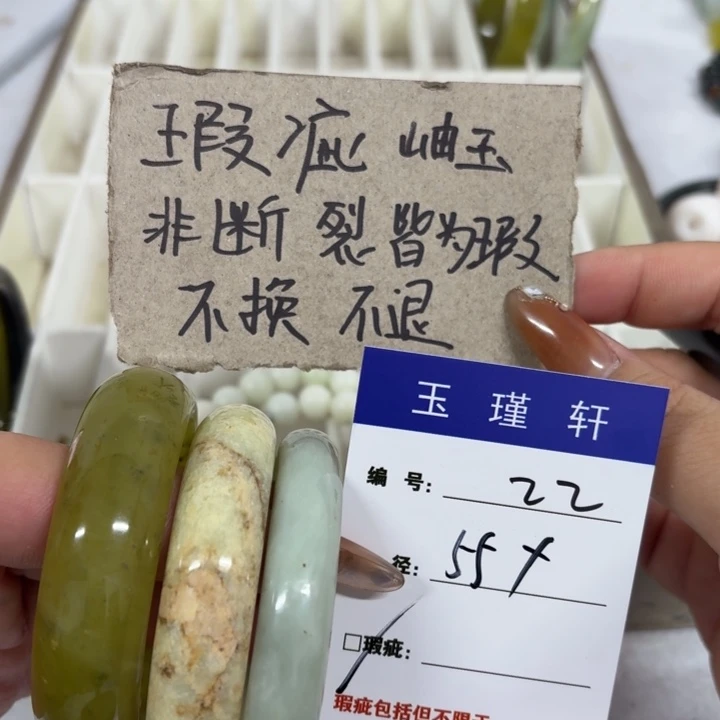 瑕疵 岫玉
非断裂皆为瑕
不换 不退
玉瑾轩
编号: 22
径: 55+
□瑕疵:
瑕疵包括但不限于